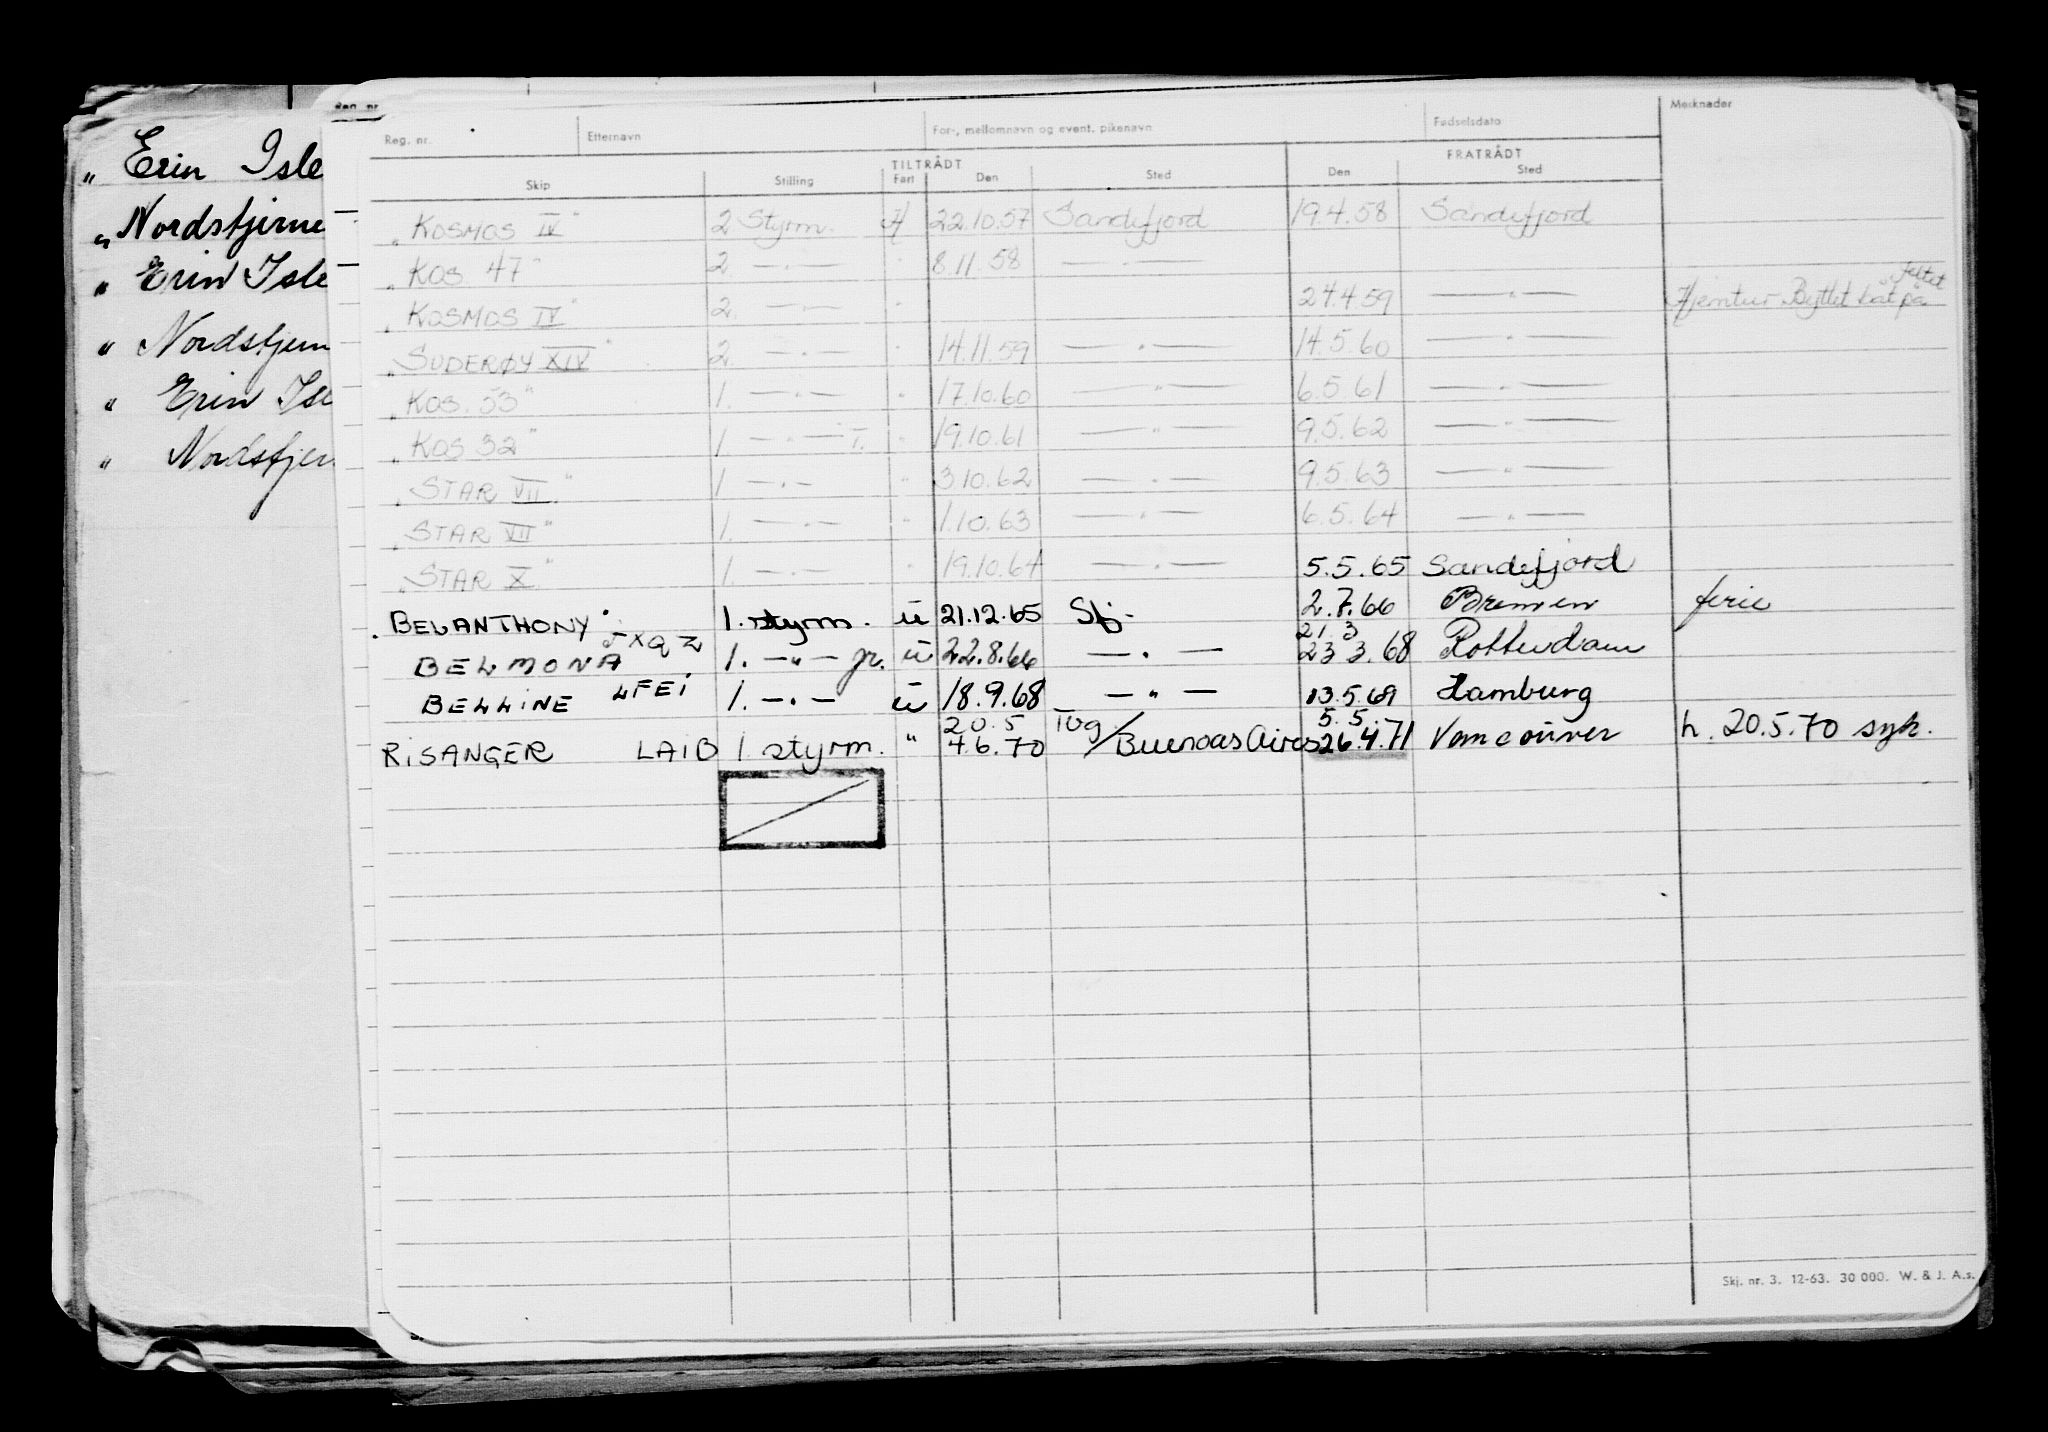 Reg. nr.
„ Erin Isle
„ Nordstjerne
„ Erin Isle
„ Nordstjern
„ Erin Isl
„ Nordstjer
Reg. nr. Etternavn For-, mellomnavn og event. pikenavn Fødselsdato Merknader
TILTRÅDT FRATRÅDT
Skip Stilling Fart Den Sted Den Sted
„KOSMOS IV“ 2 Styrm. H 22.10.57 Sandefjord 19.4.58 Sandefjord
„KOS. 47“ 2 —„— „ 8.11.58 —„—
„KOSMOS IV“ 2. —„— „ 24.4.59 —„— Hjemtur. Byttet båt på feltet
„SUDERØY XIV“ 2. —„— „ 14.11.59 —„— 14.5.60 —„—
„KOS. 53“ 1. —„— „ 17.10.60 —„— 6.5.61 —„—
„KOS 32“ 1 —„— I. „ 19.10.61 —„— 9.5.62 —„—
„STAR VII.“ 1 —„— „ 3.10.62 —„— 9.5.63 —„—
„STAR VII“ 1. —„— „ 1.10.63 —„— 6.5.64 —„—
„STAR X.“ 1 —„— „ 19.10.64 —„— 5.5.65 Sandefjord
BELANTHONY 1. styrm. u 21.12.65 Sfj- 2.7.66 Bremen ferie
JXQZ 21.3
BELMONA 1. —„— jr. u 22.8.66 —„— 23.3.68 Rotterdam
BELLINE LFEI 1. —„— u 18.9.68 —„— 13.5.69 Hamburg
20.5 Tvg 5.5.
RISANGER LAIB 1 styrm. „ 4.6.70 /Buenoas Aires 26.4.71 Vancouver h. 20.5.70 syk.
Skj. nr. 3. 12-63. 30 000. W. & J. A.s.